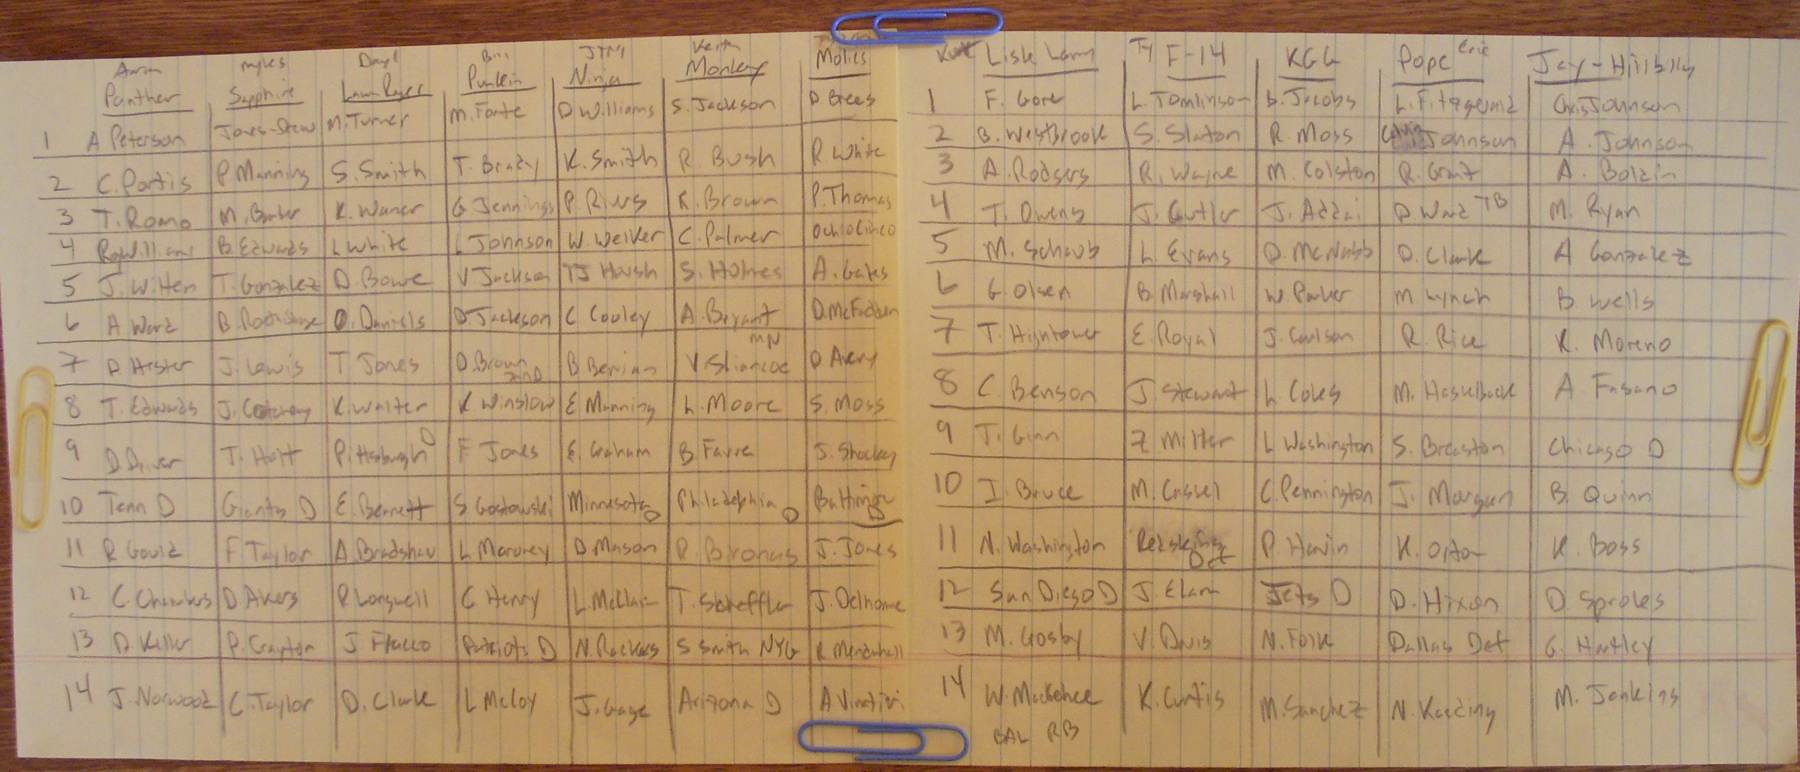 Aaron Myles Daryl Bill Jim Keith
Panther Sapphire LawnRager Punkin Ninja Monkey Molies
1 A Peterson Jones-Drew M. Turner M. Forte D Williams S. Jackson D. Brees
2 C. Portis P Manning S. Smith T. Brady K. Smith R. Bush R White
3 T. Romo M. Barber K. Warner G Jennings P. Rivers R. Brown P. Thomas
4 Roy Williams B. Edwards L White L Johnson W. Welker C. Palmer Ochocinco
5 J. Witten T. Gonzalez D. Bowe V Jackson TJ Housh S. Holmes A. Gates
6 A Ward B. Roethlisberger O. Daniels D. Jackson C Cooley A. Bryant D. McFadden
7 D Hester J. Lewis T Jones D. Brown IND B Berrian V. Shiancoe MN D Avery
8 T. Edwards J. Cotchery K. Walter K Winslow E Manning L. Moore S. Moss
9 D. Driver T. Holt Pittsburgh D F Jones E. Graham B Favre J. Shockey
10 Tenn D Giants D E. Bennett S Gostowski Minnesota D Philadelphia D Baltimore D
11 R Gould F Taylor A. Bradshaw L Maroney D. Mason R. Bironas J. Jones
12 C. Chambers D Akers R Longwell C Henry L. McClain T. Scheffler J. Delhome
13 D. Keller P. Crayton J Flacco Patriots D N. Rackers S Smith NYG R Mendenhall
14 J. Norwood C. Taylor D. Clark L McCoy J. Gage Arizona D A Vinatieri
Kurt Lisk Lam Ty F-14 KGG Pope Eric Jay-Hillbilly
1 F. Gore L. Tomlinson B. Jacobs L. Fitzgerald Chris Johnson
2 B. Westbrook S. Slaton R. Moss Calvin Johnson A. Johnson
3 A. Rodgers R. Wayne M. Colston R. Grant A. Boldin
4 T. Owens J. Cutler J. Addai D Ward TB M. Ryan
5 M. Schaub L. Evans D. McNabb D. Clark A Gonzalez
6 G. Olsen B. Marshall W Parker M Lynch B Wells
7 T. Hightower E. Royal J. Carlson R. Rice K. Moreno
8 C. Benson J. Stewart L Coles M. Hasselback A Fasano
9 T. Ginn Z Miller L. Washington S. Breaston Chicago D
10 I. Bruce M. Cassel C. Pennington J. Morgan B. Quinn
11 N. Washington Redskins Def P. Harvin K. Orton K. Boss
12 San Diego D J. Elam Jets D D. Hixon D. Sproles
13 M. Crosby V. Davis N. Folk Dallas Def G. Hartley
14 W. McGahee K. Curtis M. Sanchez N. Kaeding M. Jenkins
BAL RB